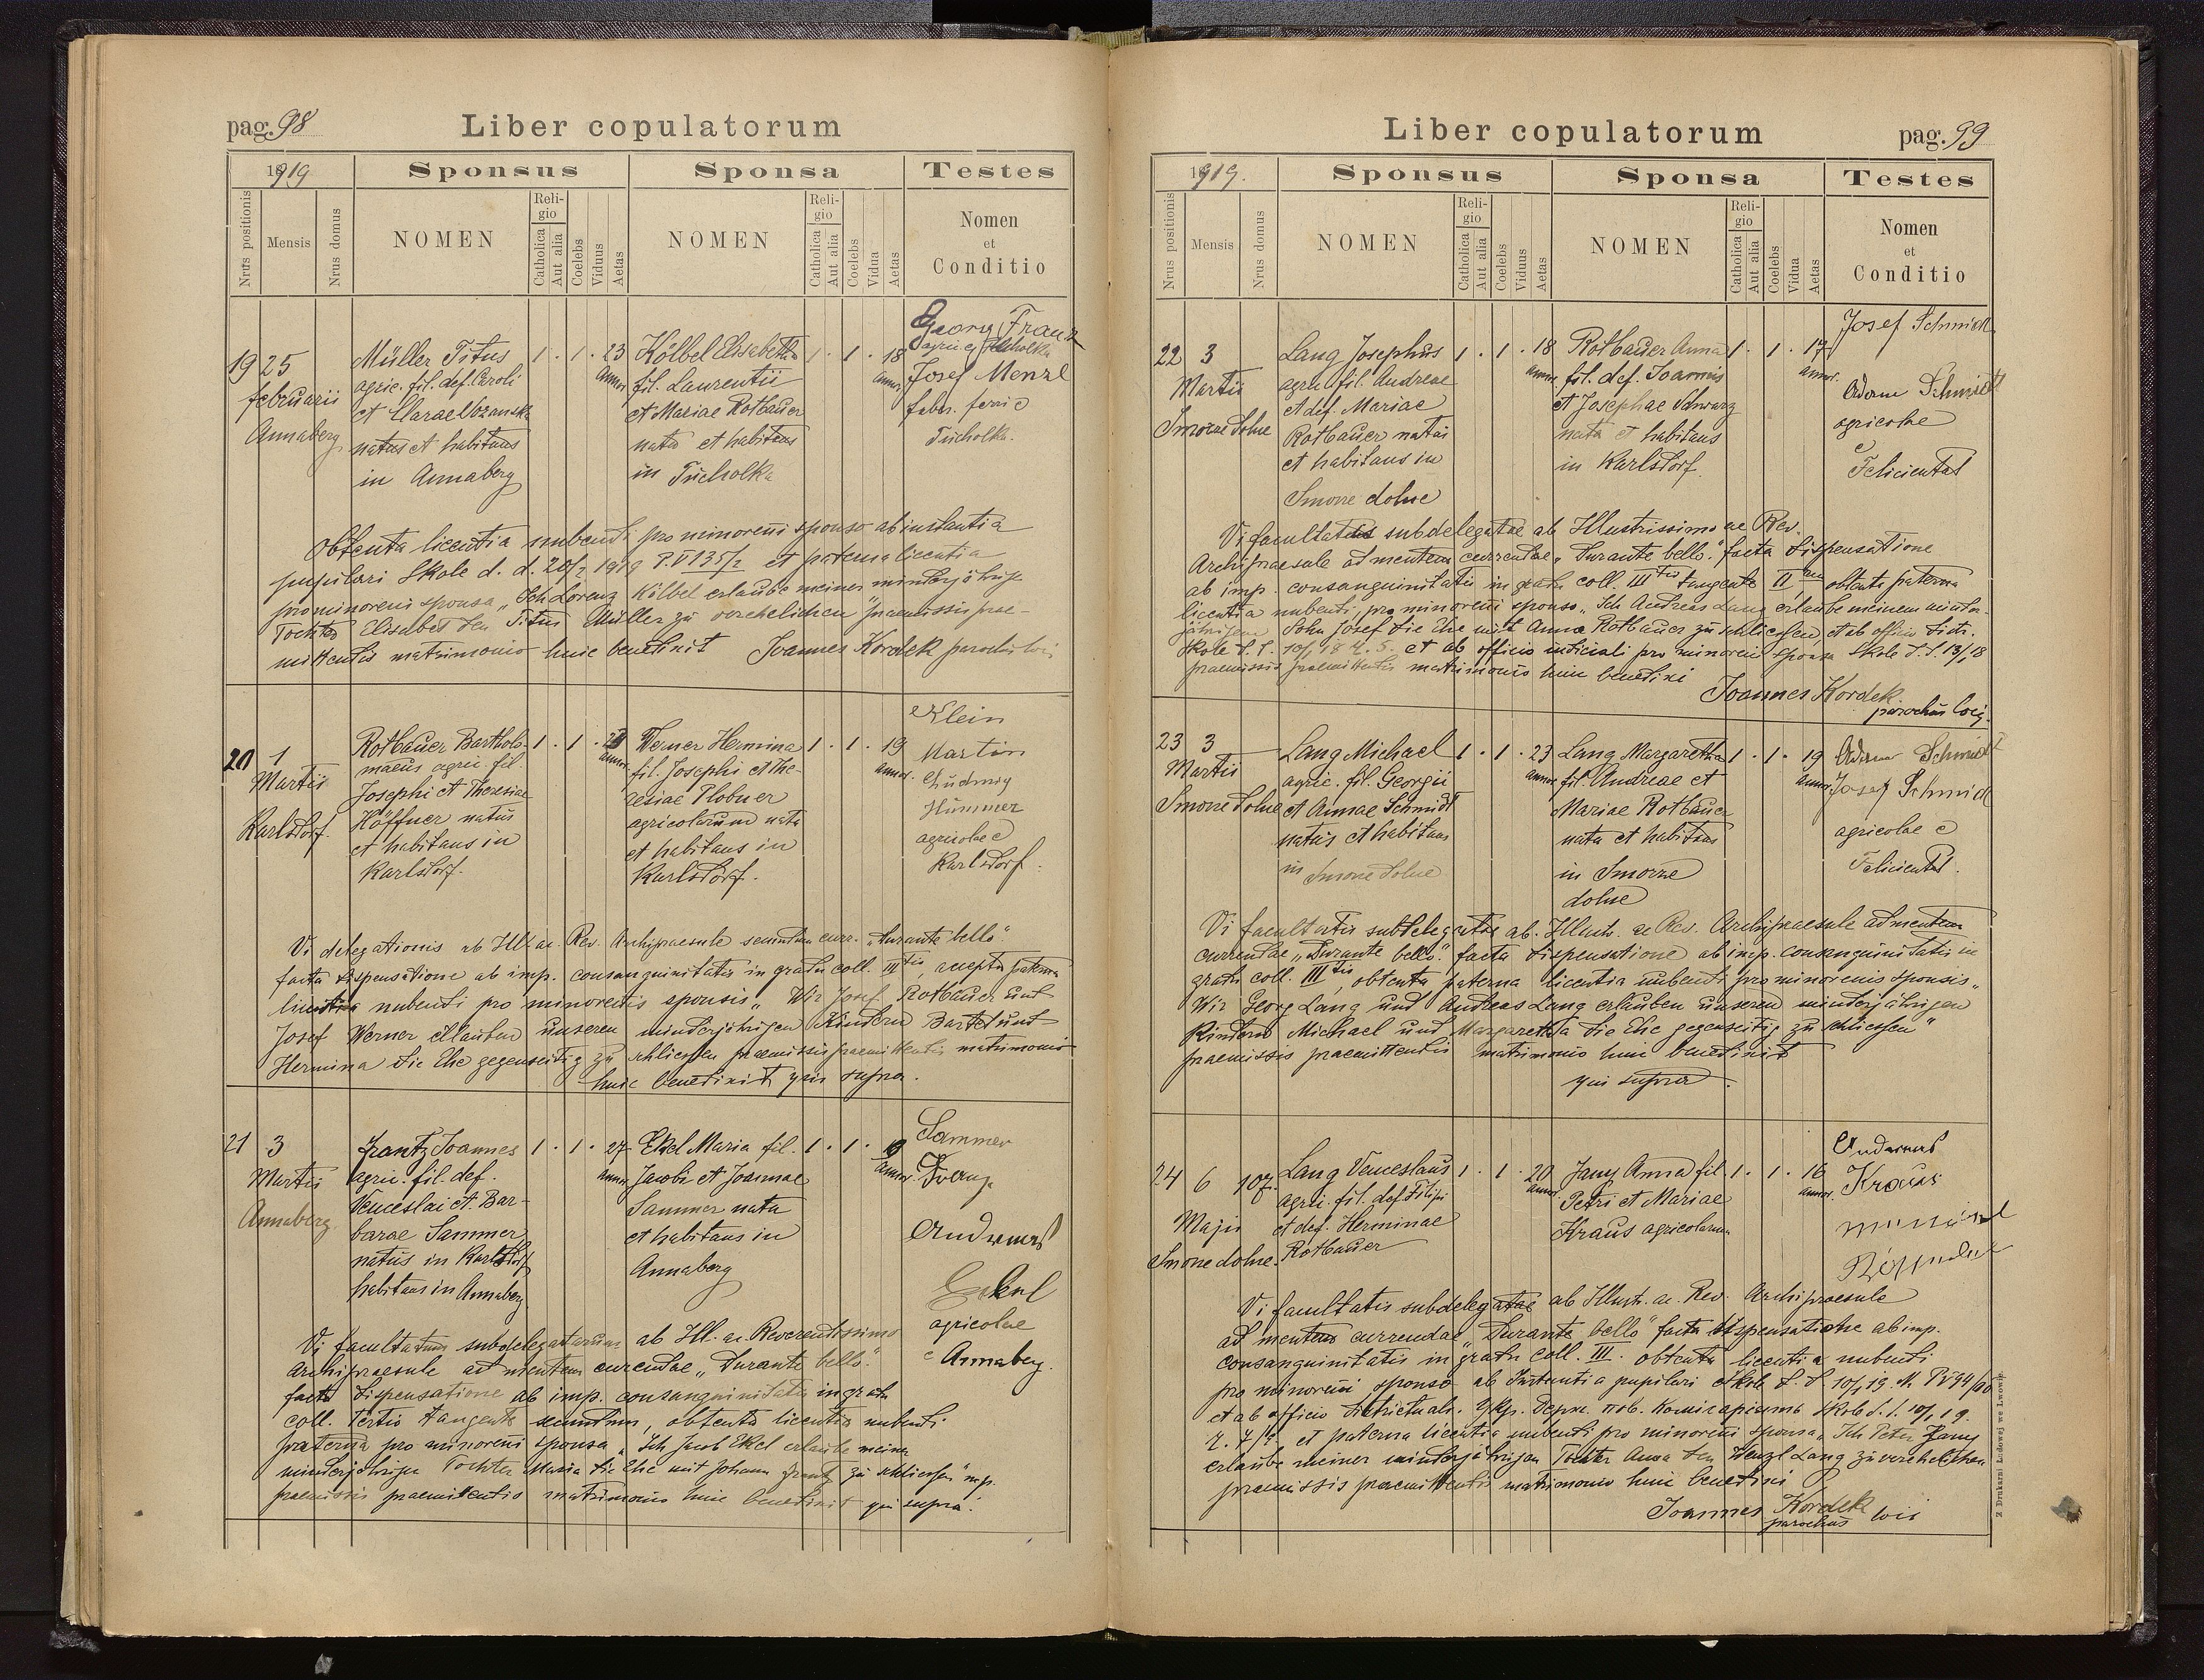 pag. 98
Liber copulatorum
1919
Sponsus
Sponsa
Testes
Nrus positionis
Mensis
Nrus domus
NOMEN
Religio
Catholica
Aut alia
Coelebs
Viduus
Aetas
NOMEN
Religio
Catholica
Aut alia
Coelebs
Vidua
Aetas
Nomen
et
Conditio
19 25
februarii
Annaberg
Müller Titus
agric. fil. def. Caroli
et Clarae
natus et habitans
in Annaberg
1 . 1 . 23
annor.
Kölbel Elisabetha
fil. Laurentii
et Mariae Rotbauer
nata et habitans
in Tucholka
1 . 1 . 18
annor.
Georg Franz
agric. e Tucholka
Josef Menzl
faber. ferri e
Tucholka.
Obtenta licentia nubendi pro minoreni sponso ab instantia
pupilari Skole d. d. 20/2 1919 P. V 135/2 et paterna licentia
pro minoreni sponsa „Ich Lorenz Kölbel erlaube meiner minderjährige
Tochter Elisabet den Titus Müller zu verehelichen" praemissis prae-
mittendis matrimonio huic benedixit Joannes Kordek parochus loci
20 1
Martii
Karlsdorf.
Rotbauer Bartholo-
maeus agric. fil.
Josephi et Theresiae
Höffner natus
et habitans in
Karlsdorf.
1 . 1 .
annor.
Werner Hermina
fil. Josephi et The-
resiae Plobner
agricolarum nata
et habitans in
Karlsdorf.
1 . 1 . 19
annor.
Klein
Martin
Ludwig
Hümmer
agricolae e
Karlsdorf.
Vi delegationis ab Ill. ac. Rev. Archipraesule secundum curr. „Durante bello"
facta dispensatione ab imp. consanguinitatis in gradu coll. IIItis, accepta paterna
licentia nubendi pro minorenis sponsis „Wir Josef Rotbauer und
Josef Werner erlauben unseren minderjährigen Kindern Bartel und
Hermina die Ehe gegenseitig zu schliessen praemissis praemittendis matrimonio
huic benedixit qui supra.
21 3
Martii
Annaberg.
Frantz Joannes
agric. fil. def.
Venceslai et Bar-
barae Sammer
natus in Karlsdorf
habitans in Annaberg
1 . 1 . 27
annor.
Ekel Maria fil.
Jacobi et Joannae
Sammer nata
et habitans in
Annaberg
1 . 1 .
annor.
Sammer
Franz
Andreas
Eckel
agricolae
e Annaberg.
Vi facultatum subdelegatarum ab Ill. ac. Reverendissimo
Archipraesule ad mentem currendae „Durante bello."
facta dispensatione ab imp. consanguinitatis in gradu
coll. tertio tangente secundum, obtenta licentia nubendi
paterna pro minoreni sponsa „Ich Jacob Ekel erlaube meiner
minderjährigen Tochter Maria die Ehe mit Johann Frantz zu schliessen" mp.
praemissis praemittendis matrimonio huic benedixit qui supra.
Liber copulatorum
pag. 99
1919.
Sponsus
Sponsa
Testes
Nrus positionis
Mensis
Nrus domus
NOMEN
Religio
Catholica
Aut alia
Coelebs
Viduus
Aetas
NOMEN
Religio
Catholica
Aut alia
Coelebs
Vidua
Aetas
Nomen
et
Conditio
22 3
Martii
Smorze dolne
Lang Josephus
agric. fil. Andreae
et def. Mariae
Rotbauer natus
et habitans in
Smorze dolne
1 . 1 . 18
annor.
Rotbauer Anna
fil. def. Joannis
et Josephae Schwarz
nata et habitans
in Karlsdorf.
1 . 1 . 17
annor.
Josef Schmidt
Adam Schmidt
agricolae
e
Felicientál
Vi facultatis subdelegatae ab Illustrissimo ac Rev.
Archipraesule ad mentem currendae „Durante bello." facta dispensatione
ab imp. consanguinitatis in gradu coll. IIItio tangente IIum, obtenta paterna
licentia nubendi pro minoreni sponso „Ich Andreas Lang erlaube meinem minder-
jährigem Sohn Josef die Ehe mit Anna Rotbauer zu schliessen, et ab officio distr.
Skole d. d. 10/ 18 et ab officio iudiciali pro minoreni sponsa Skole d. d. 13/ 18
praemissis praemittendis matrimonio huic benedixi
Joannes Kordek
parochus loci.
23 3
Martii
Smorze dolne
Lang Michael
agric. fil. Georgii
et Annae Schmidt
natus et habitans
in Smorze dolne
1 . 1 . 23
annor.
Lang Margaretha
fil. Andreae et
Mariae Rotbauer
nata et habitans
in Smorze
dolne
1 . 1 . 19
annor.
Adam Schmidt
Josef Schmidt
agricolae e
Felicientál.
Vi facultatis subdelegatae ab. Illustr. ac Rev. Archipraesule ad mentem
currendae „Durante bello." facta dispensatione ab imp. consanguinitatis in
gradu coll. IIItis, obtenta paterna licentia nubendi pro minorenis sponsis „
Wir Georg Lang und Andreas Lang erlauben unseren minderjährigen
Kindern Michael und Margaretha die Ehe gegenseitig zu schliessen"
praemissis praemittendis matrimonio huic benedixit
qui supra.
24 6 107.
Majii
Smorze dolne.
Lang Venceslaus
agric. fil. def. Filipi
et def. Herminae
Rotbauer
1 . 1 . 20
annor.
Jany Anna fil.
Petri et Mariae
Kraus agricolarum
1 . 1 . 16
annor.
Andreas
Kraus
Vi facultatis subdelegatae ab Illustr. ac. Rev. Archipraesule
ad mentem currendae „Durante bello" facta dispensatione ab imp.
consanguinitatis in gradu coll. III. obtenta licentia nubendi
pro minoreni sponso ab Instantia pupilari Skole d. d. 10/ 19.
et ab officio districtuali. Skole d. d. 10/ 19.
et paterna licentia nubendi pro minoreni sponsa „Ich Peter Jany
erlaube meiner minderjährigen Tochter Anna den Wenzl Lang zu verehelichen
praemissis praemittendis matrimonio huic benedixi
Joannes Kordek
parochus loci
Z Drukarni Ludowej we Lwowie